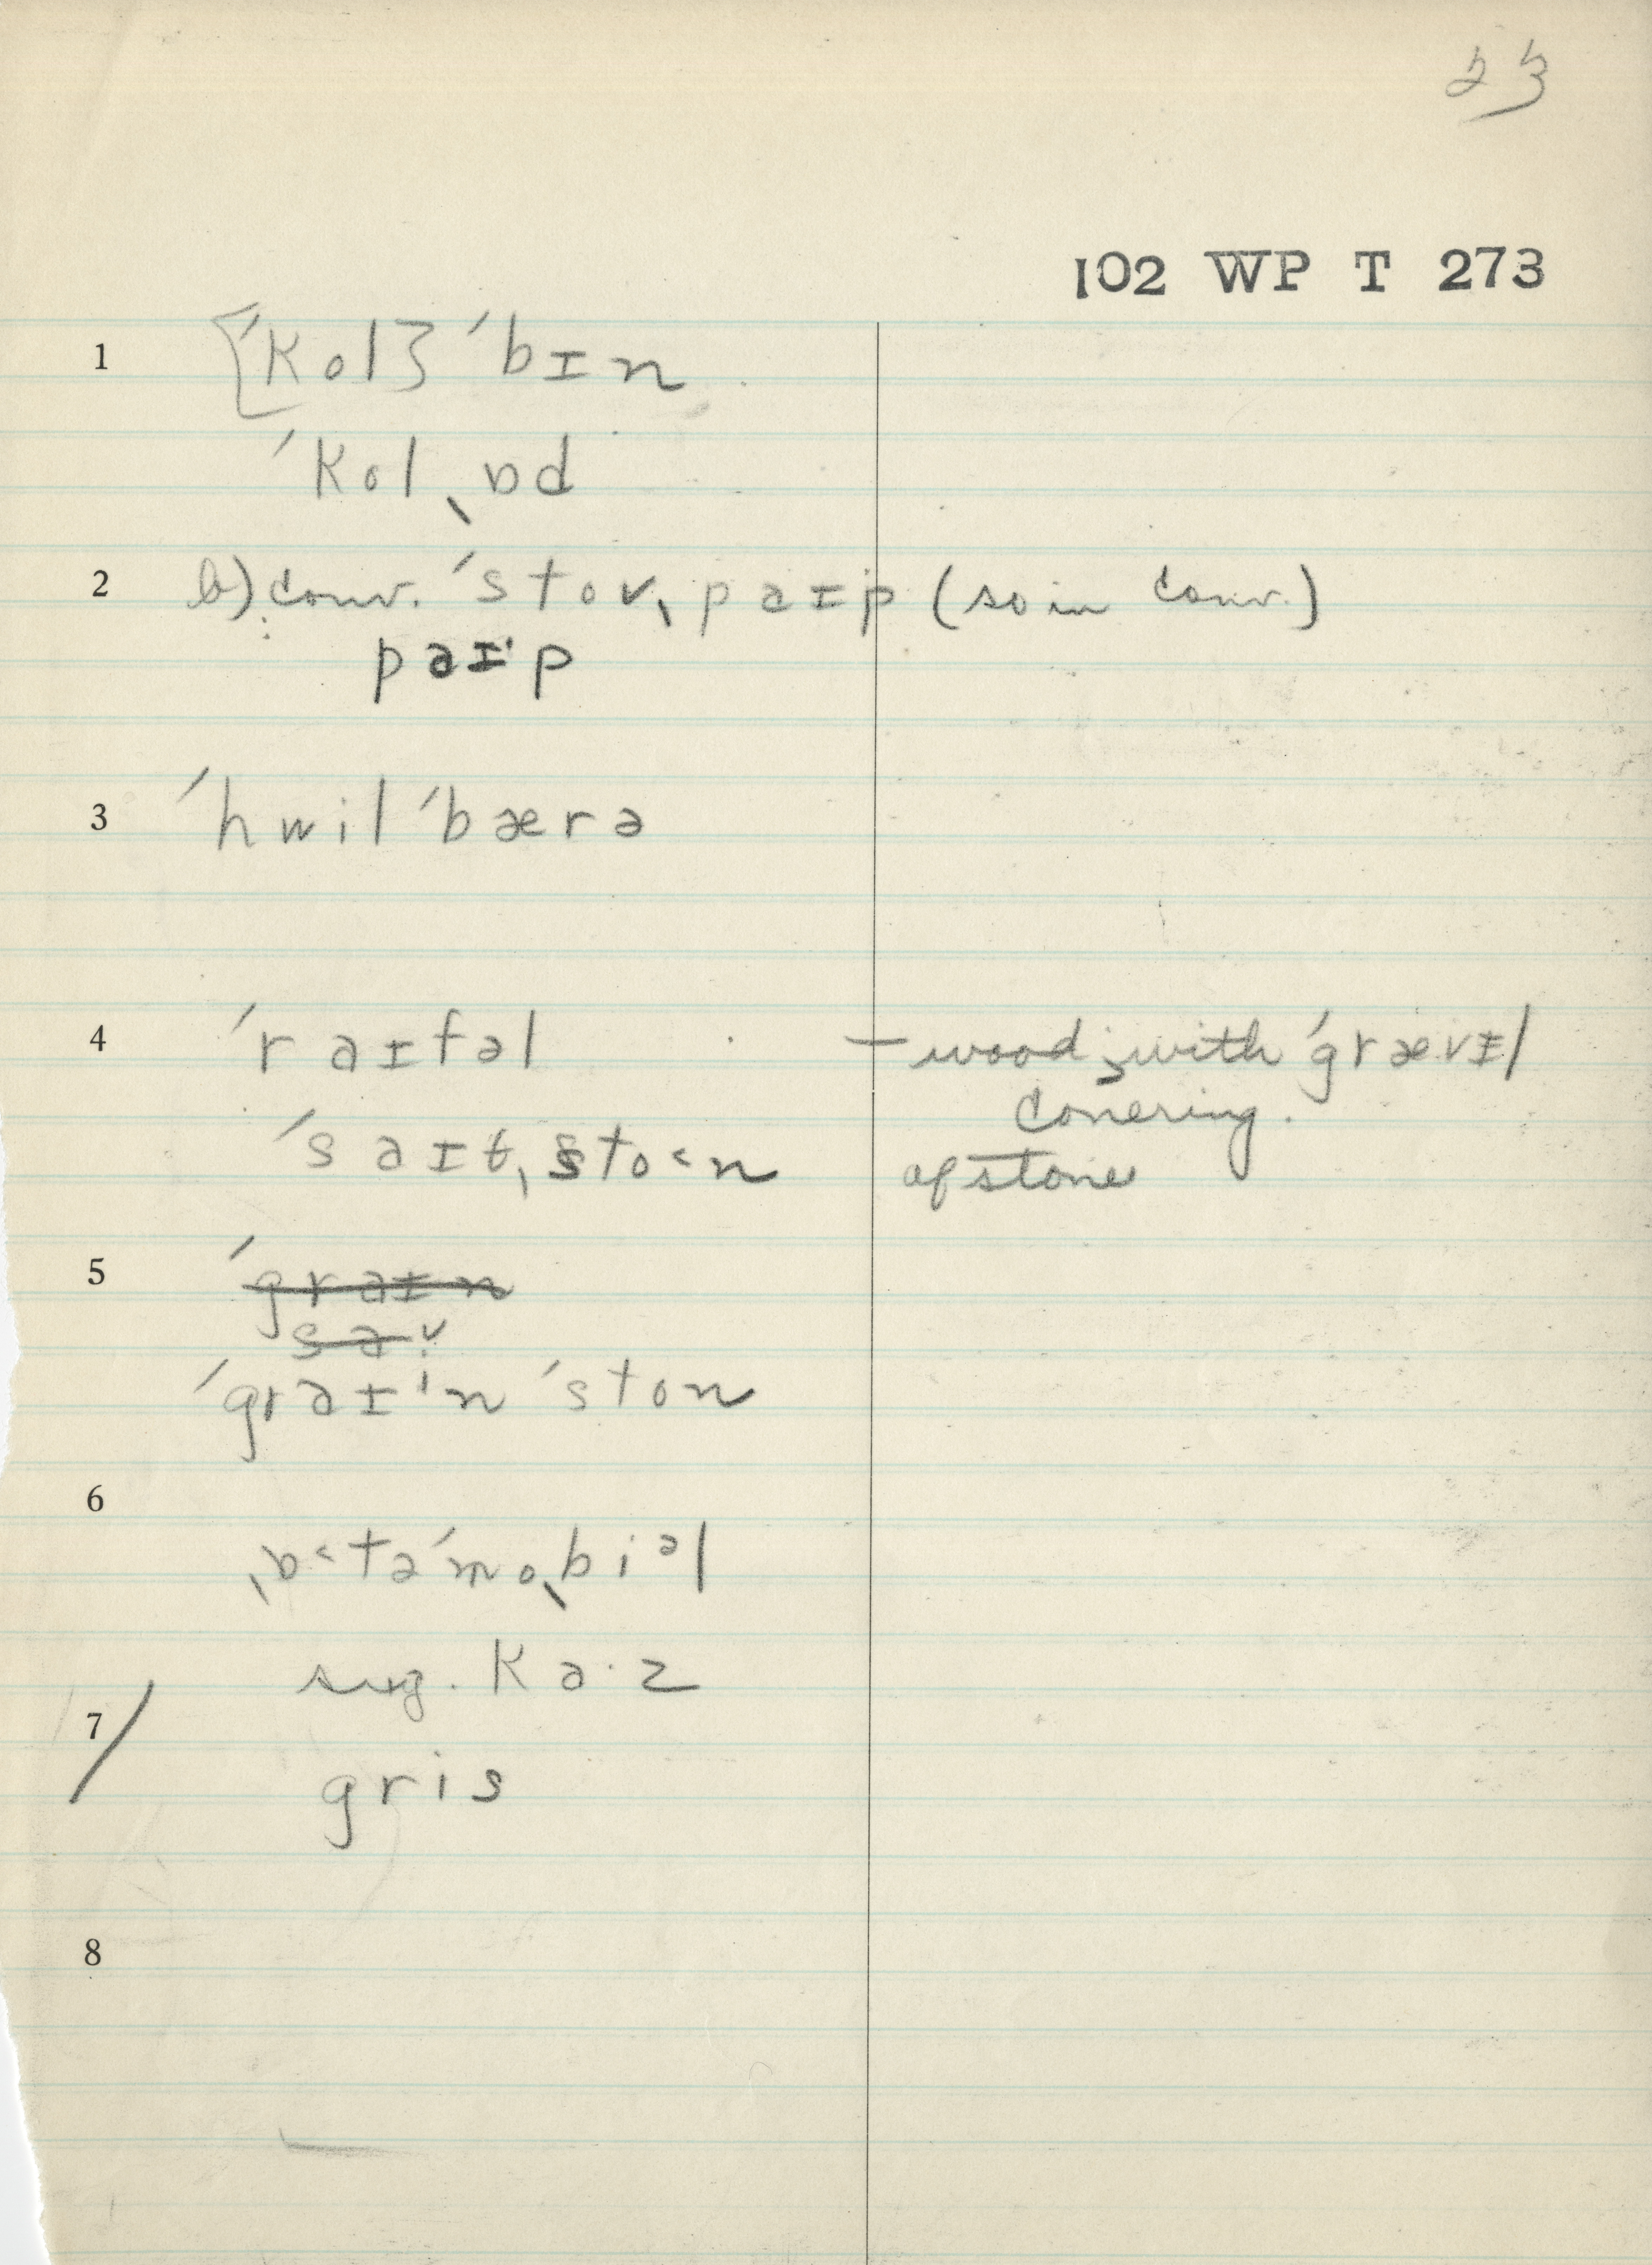 23
102 WP T 273
1 [ˈkol] ˈbɪn
ˈkolˌɒd
2 b) conv. ˈstovˌpaɪp (so in conv.)
paɪˑp
3 ˈhwilˈbærə
4 ˈraɪfəl — wood; with ˈgrævɪl
covering.
ˈsaɪtˌsto˂n of stone
5 ˈgraɪn
sa
ˈgraɪˑn ˈston
6
ˌɒ˂təˈmoˌbiᵊl
sug. Ka·z
7/
gris
8